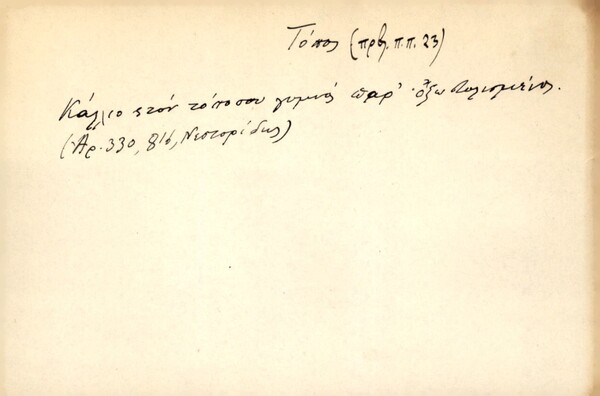 Τόπος (πρβ. π.π. 23)
Κάλλιο στόν τόπο σου γυμνός παρ' ὄξω στολισμένος.
(Ἀρ. 330, 816, Νεστορίδης)